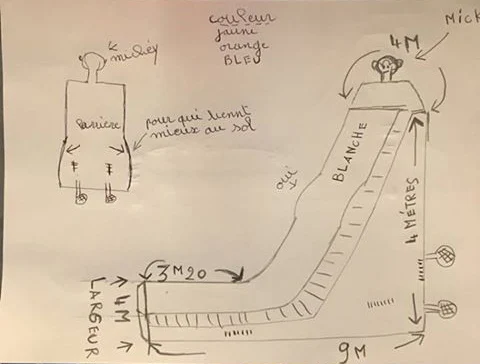 couleur
jaune
orange
BLEU
mickey
barrière
pour qui tiennt
mieux au sol
4M
Mick
BLANCHE
oui
4 MÉTRES
3M20
4M
LARGEUR
9M